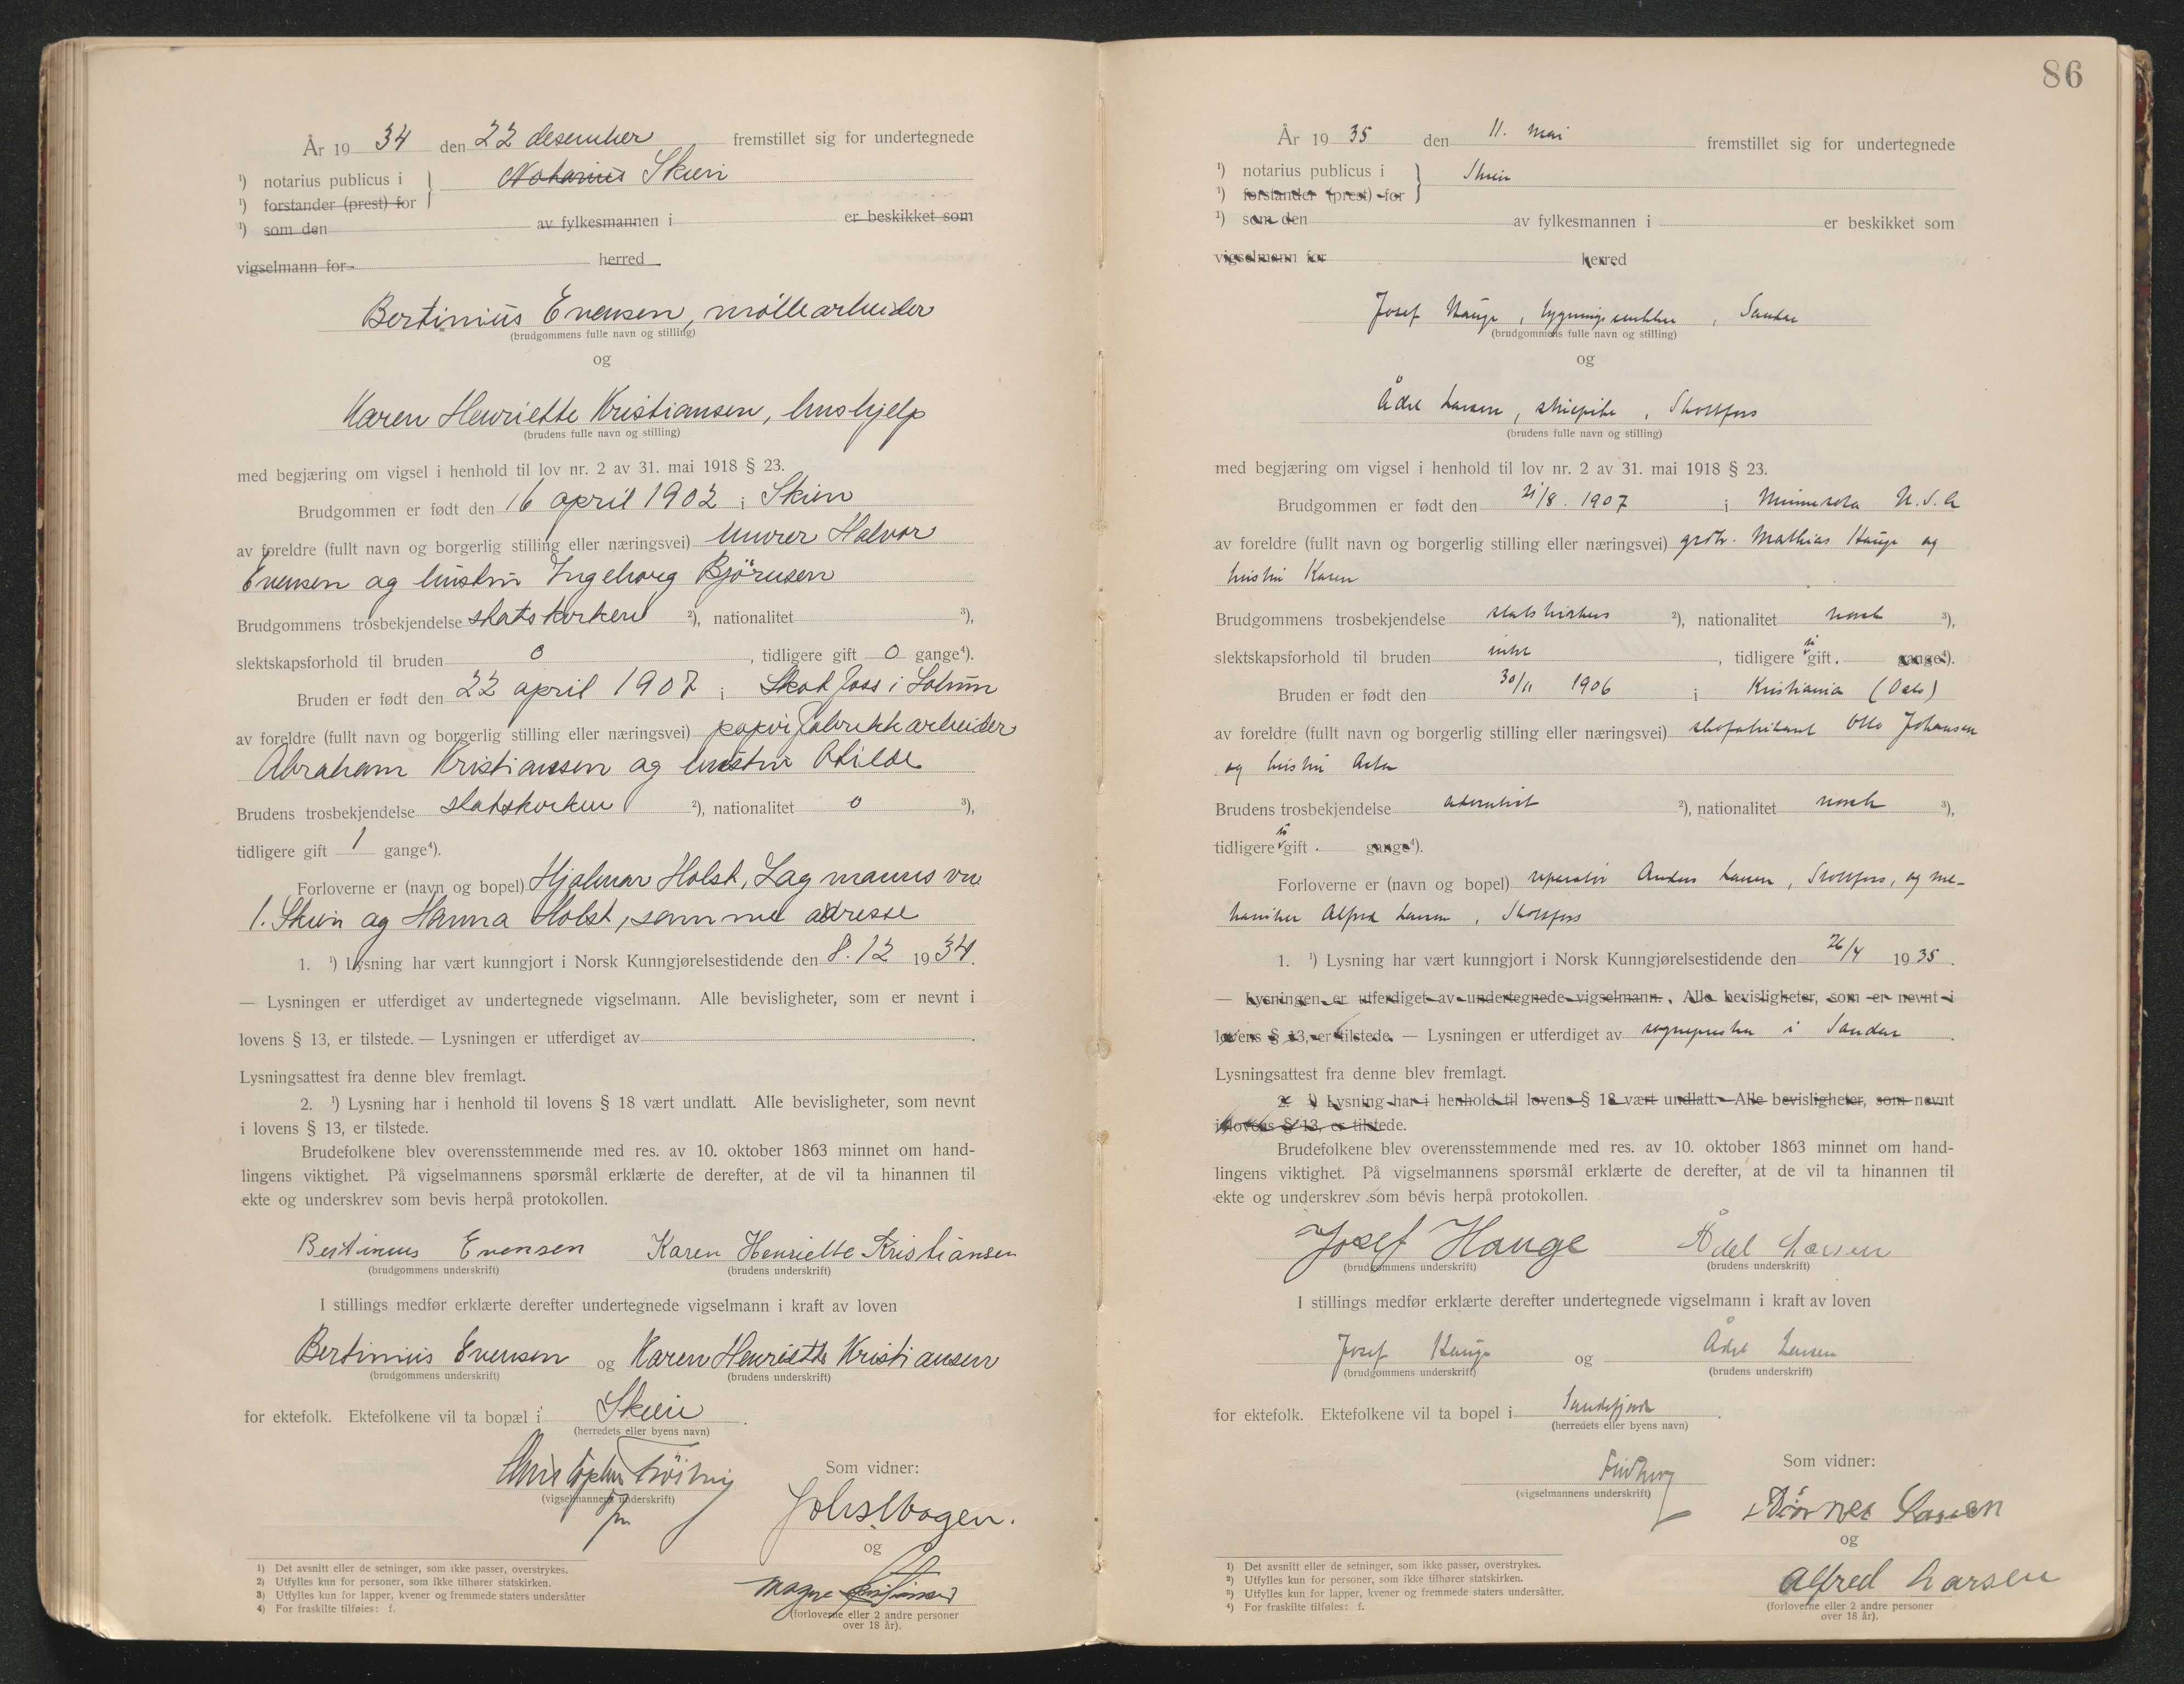 År 19 34 den 22 desember fremstillet sig for undertegnede
¹) notarius publicus i } Notarius Skien
¹) forstander (prest) for
¹) som den av fylkesmannen i er beskikket som
vigselmann for herred
Bertinius Evensen, møllearbeider
(brudgommens fulle navn og stilling)
og
Karen Henriette Kristiansen, hushjelp
(brudens fulle navn og stilling)
med begjæring om vigsel i henhold til lov nr. 2 av 31. mai 1918 § 23.
Brudgommen er født den 16 april 1902 i Skien
av foreldre (fullt navn og borgerlig stilling eller næringsvei) murer Halvor
Evensen og hustru Ingeborg Bjørnsen
Brudgommens trosbekjendelse statskirken ²), nationalitet ³),
slektskapsforhold til bruden 0, tidligere gift 0 gange⁴).
Bruden er født den 22 april 1907 i Skotfoss i Solum
av foreldre (fullt navn og borgerlig stilling eller næringsvei) papirfabrikkarbeider
Abraham Kristiansen og hustru Otilde
Brudens trosbekjendelse statskirken ²), nationalitet 0 ³),
tidligere gift 1 gange⁴).
Forloverne er (navn og bopel) Hjalmar Holst, Lagmanns vn
1. Skien og Hanna Holst, samme adresse
1. ¹) Lysning har vært kunngjort i Norsk Kunngjørelsestidende den 8.12 19 34.
— Lysningen er utferdiget av undertegnede vigselmann. Alle bevisligheter, som er nevnt i
lovens § 13, er tilstede. — Lysningen er utferdiget av .
Lysningsattest fra denne blev fremlagt.
2. ¹) Lysning har i henhold til lovens § 18 vært undlatt. Alle bevisligheter, som nevnt
i lovens § 13, er tilstede.
Brudefolkene blev overensstemmende med res. av 10. oktober 1863 minnet om hand-
lingens viktighet. På vigselmannens spørsmål erklærte de derefter, at de vil ta hinannen til
ekte og underskrev som bevis herpå protokollen.
Bertinius Evensen Karen Henriette Kristiansen
(brudgommens underskrift) (brudens underskrift)
I stillings medfør erklærte derefter undertegnede vigselmann i kraft av loven
Bertinius Evensen og Karen Henriette Kristiansen
(brudgommens underskrift) (brudens underskrift)
for ektefolk. Ektefolkene vil ta bopæl i Skien.
(herredets eller byens navn)
(vigselmannens underskrift)
Som vidner:
og
Magne Kristiansen
(forloverne eller 2 andre personer
over 18 år).
1) Det avsnitt eller de setninger, som ikke passer, overstrykes.
2) Utfylles kun for personer, som ikke tilhører statskirken.
3) Utfylles kun for lapper, kvener og fremmede staters undersåtter
4) For fraskilte tilføies: f.
86
År 19 35 den 11. mai fremstillet sig for undertegnede
¹) notarius publicus i } Skien
¹) forstander (prest) for
¹) som den av fylkesmannen i er beskikket som
vigselmann for herred
Josef Hauge, bygningssnekker, Sandar
(brudgommens fulle navn og stilling)
og
Ådel Larsen, , Skotfoss
(brudens fulle navn og stilling)
med begjæring om vigsel i henhold til lov nr. 2 av 31. mai 1918 § 23.
Brudgommen er født den 21/8. 1907 i Minnesota U.S.A
av foreldre (fullt navn og borgerlig stilling eller næringsvei) grdbr. Mathias Hauge og
hustru Karen
Brudgommens trosbekjendelse statskirkens ²), nationalitet norsk ³),
slektskapsforhold til bruden intet, tidligere ei gift. gange⁴).
Bruden er født den 30/11 1906 i Kristiania (Oslo)
av foreldre (fullt navn og borgerlig stilling eller næringsvei) skofabrikant Otto Johansen
og hustru Asta
Brudens trosbekjendelse adventist ²), nationalitet norsk ³),
tidligere ei gift. gange⁴).
Forloverne er (navn og bopel) reparatør Anders Larsen, Skotfoss, og me-
kaniker Alfred Larsen, Skotfoss
1. ¹) Lysning har vært kunngjort i Norsk Kunngjørelsestidende den 26/4 19 35.
— Lysningen er utferdiget av undertegnede vigselmann. Alle bevisligheter, som er nevnt i
lovens § 13, er tilstede. — Lysningen er utferdiget av sognepresten i Sandar.
Lysningsattest fra denne blev fremlagt.
2. ¹) Lysning har i henhold til lovens § 18 vært undlatt. Alle bevisligheter, som nevnt
i lovens § 13, er tilstede.
Brudefolkene blev overensstemmende med res. av 10. oktober 1863 minnet om hand-
lingens viktighet. På vigselmannens spørsmål erklærte de derefter, at de vil ta hinannen til
ekte og underskrev som bevis herpå protokollen.
Josef Hauge Ådel Larsen
(brudgommens underskrift) (brudens underskrift)
I stillings medfør erklærte derefter undertegnede vigselmann i kraft av loven
Josef Hauge og Ådel Larsen
(brudgommens underskrift) (brudens underskrift)
for ektefolk. Ektefolkene vil ta bopel i Sandefjord.
(herredets eller byens navn)
(vigselmannens underskrift)
Som vidner:
Larsen
og
Alfred Larsen
(forloverne eller 2 andre personer
over 18 år).
1) Det avsnitt eller de setninger, som ikke passer, overstrykes.
²) Utfylles kun for personer, som ikke tilhører statskirken.
³) Utfylles kun for lapper, kvener og fremmede staters undersåtter.
⁴) For fraskilte tilføies: f.